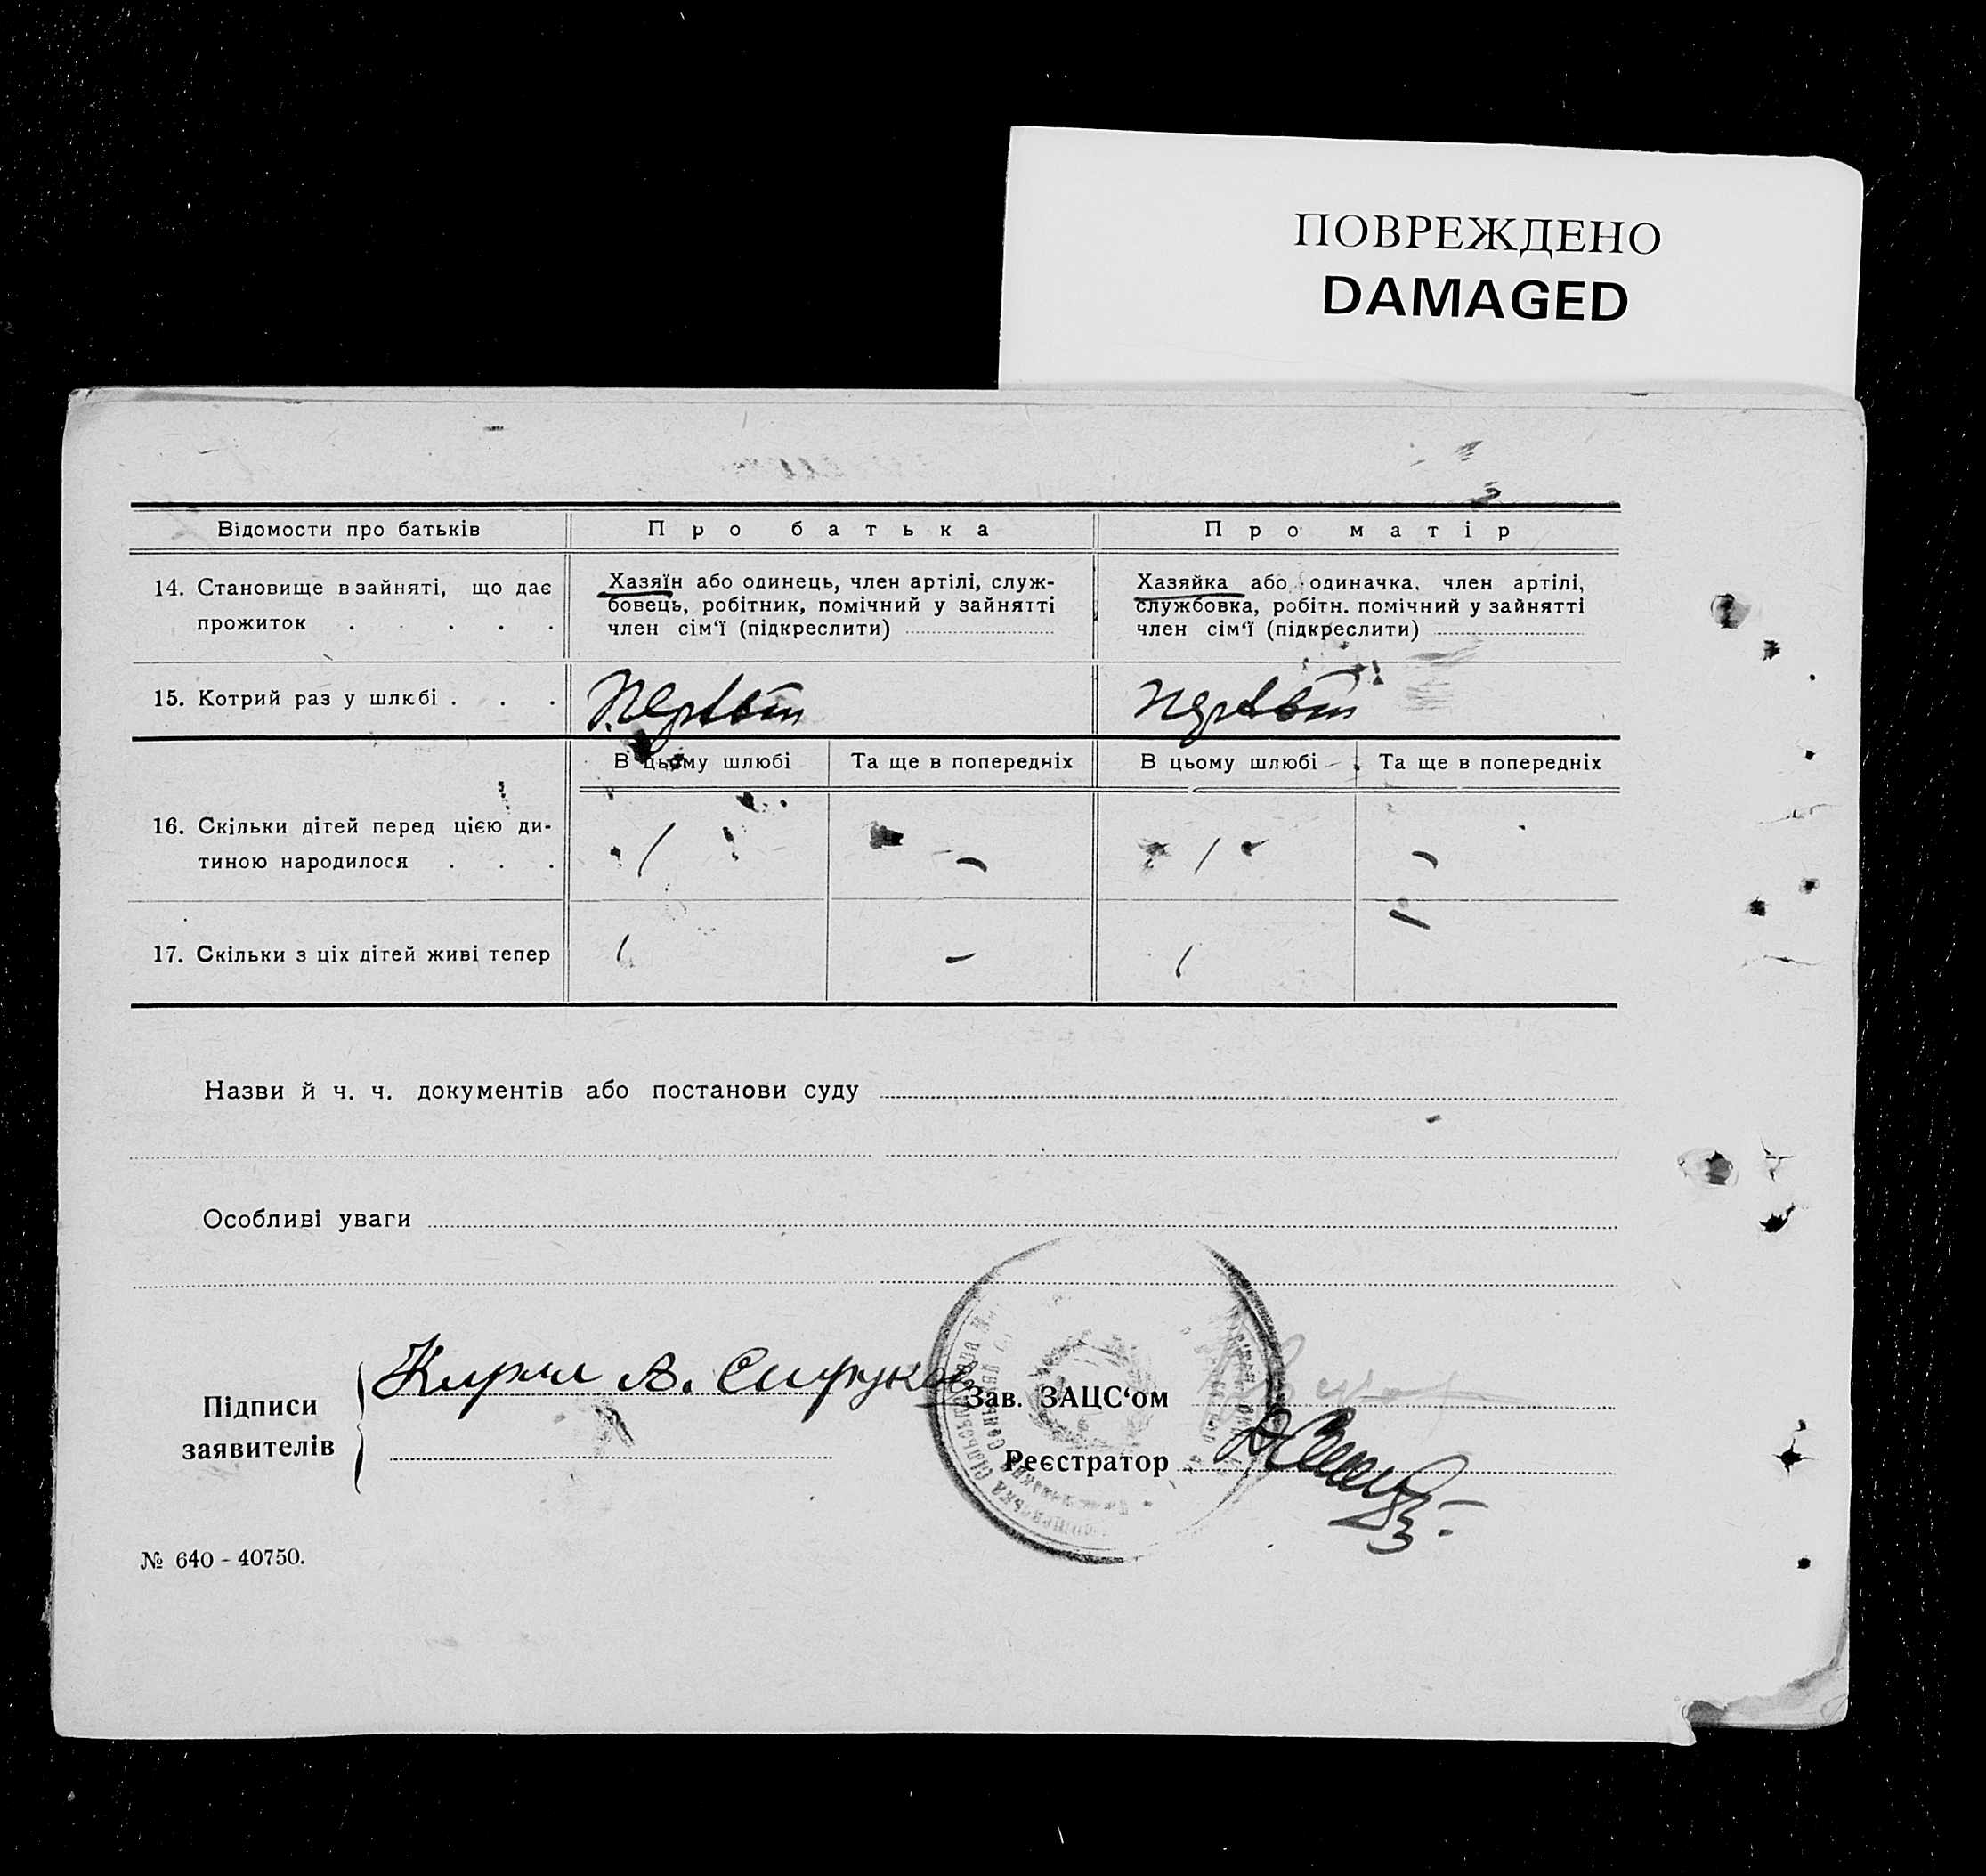 ПОВРЕЖДЕНО
DAMAGED
Відомости про батьків
Про батька
Про матір
14. Становище в зайняті, що дає
прожиток . . . . .
Хазяїн або одинець, член артілі, служ-
бовець, робітник, помічний у зайнятті
член сім‘ї (підкреслити)
Хазяйка або одиначка, член артілі,
службовка, робітн. помічний у зайнятті
член сім‘ї (підкреслити)
15. Котрий раз у шлюбі . . .
В цьому шлюбі
Та ще в попередніх
В цьому шлюбі
Та ще в попередніх
16. Скільки дітей перед цією ди-
тиною народилося . . .
1 – 1 –
17. Скільки з ціх дітей живі тепер
1 – 1 –
Назви й ч. ч. документів або постанови суду
Особливі уваги
Підписи
заявителів
Кирил А.
Зав. ЗАЦС‘ом
Реєстратор
№ 640 - 40750.